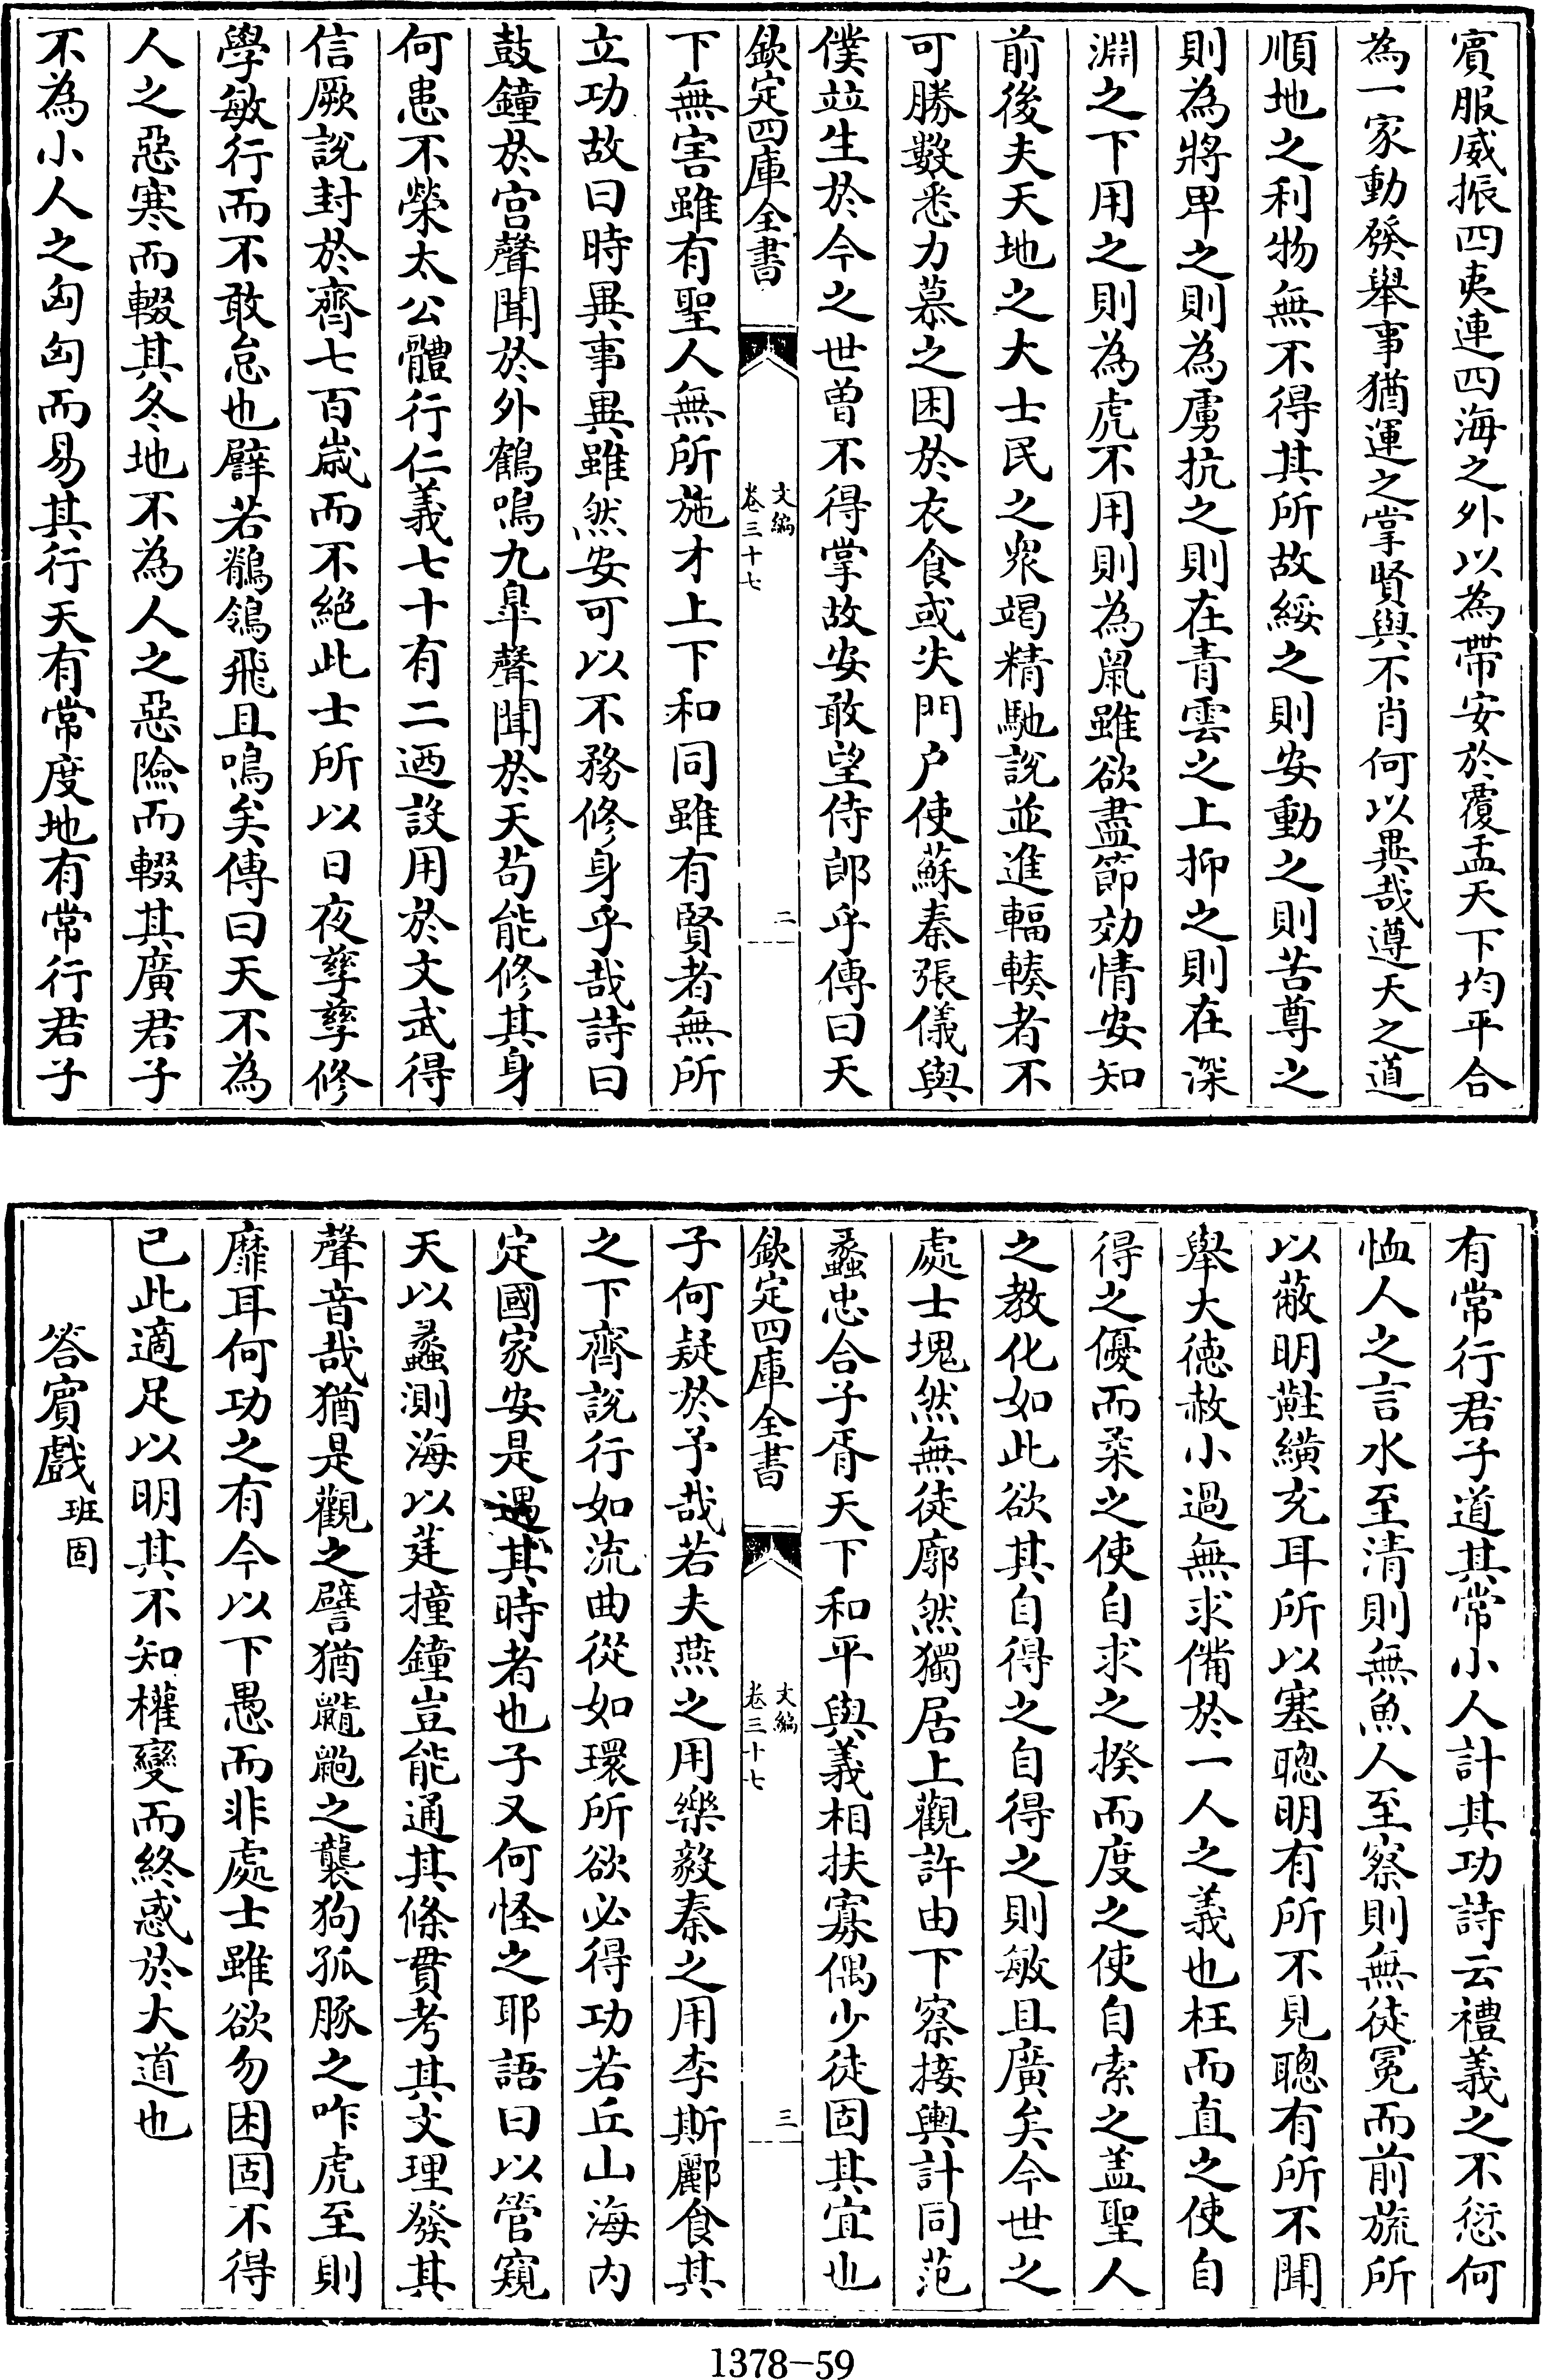 賓服威振四夷連四海之外以為帶安於覆盂天下均平合
為一家動發舉事猶運之掌賢與不肖何以異哉遵天之道
順地之利物無不得其所故綏之則安動之則苦尊之
則為將卑之則為虜抗之則在青雲之上抑之則在深
淵之下用之則為虎不用則為鼠雖欲盡節効情安知
前後夫天地之大士民之衆竭精馳說並進輻輳者不
可勝數悉力慕之困於衣食或失門户使蘇秦張儀與
僕竝生於今之世曾不得掌故安敢望侍郎乎傳曰天
欽定四庫全書
文編
卷三十七
二
下無害雖有聖人無所施才上下和同雖有賢者無所
立功故曰時異事異雖然安可以不務修身乎哉詩曰
鼓鐘於宫聲聞於外鶴鳴九臯聲聞於天苟能修其身
何患不榮太公體行仁義七十有二迺設用於文武得
信厥說封於齊七百嵗而不絶此士所以日夜孳孳修
學敏行而不敢怠也譬若鶺鴒飛且鳴矣傳曰天不為
人之惡寒而輟其冬地不為人之惡險而輟其廣君子
不為小人之匈匈而易其行天有常度地有常行君子
有常行君子道其常小人計其功詩云禮義之不愆何
恤人之言水至清則無魚人至察則無徒冕而前旒所
以蔽明黈纊充耳所以塞聰明有所不見聰有所不聞
舉大德赦小過無求備於一人之義也枉而直之使自
得之優而柔之使自求之揆而度之使自索之盖聖人
之教化如此欲其自得之自得之則敏且廣矣今世之
處士塊然無徒廓然獨居上觀許由下察接輿計同范
蠡忠合子胥天下和平與義相扶寡偶少徒固其宜也
欽定四庫全書
文編
卷三十七
三
子何疑於予哉若夫燕之用樂毅秦之用李斯酈食其
之下齊說行如流曲從如環所欲必得功若丘山海内
定國家安是遇其時者也子又何怪之耶語曰以管窺
天以蠡測海以莛撞鐘豈能通其條貫考其文理發其
聲音哉猶是觀之譬猶鼱鼩之襲狗孤豚之咋虎至則
靡耳何功之有今以下愚而非處士雖欲勿困固不得
已此適足以明其不知權變而終惑於大道也
答賓戲班固
1378-59